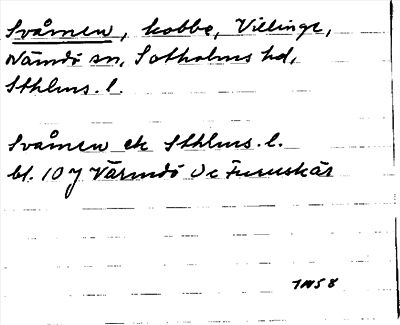 Svåmen, kobbe, Villinge,
Nämdö sn, Sotholms hd,
Sthlms. l.
Svåmen ek Sthlms. l.
bl. 10 j Värmdö Ue Furuskär
1958